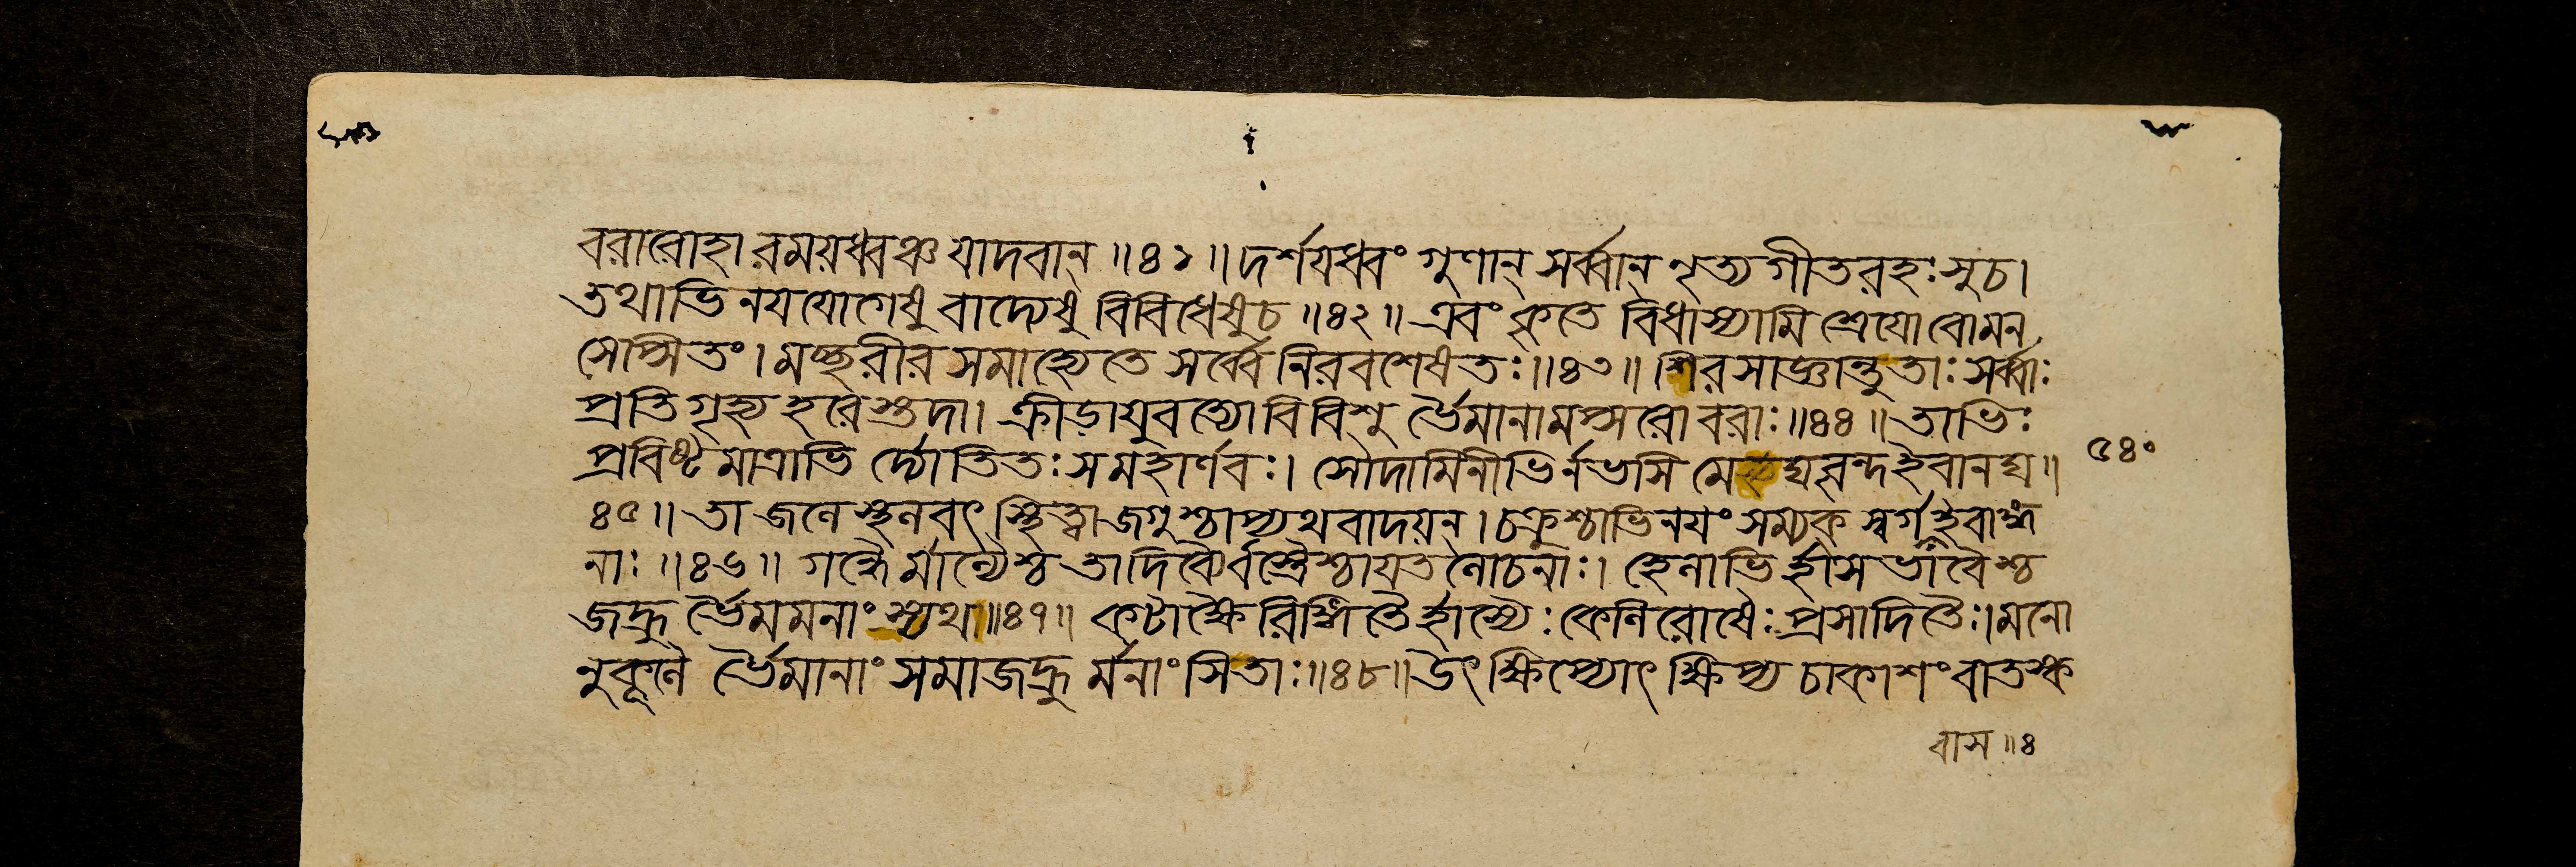 বরারোহা রময়ধ্বঞ্চ যাদবান্ ॥৪১॥ দর্শযধ্বং গুণান্ সর্ব্বান্ নৃত্য গীতরহঃসুচ।
তথাভিনযযোগেষু বাদ্যেষু বিবিধেষুচ ॥৪২॥ এবং কৃতে বিধাস্যামি শ্রেযো বোমন
সেপ্সিতং। মচ্ছরীর সমাহ্যেতে সর্ব্বে নিরবশেষতঃ॥৪৩॥ শিরসাজ্ঞান্তু তাঃ সর্ব্বাঃ
প্রতিগৃহ্য হরেস্তদা। ক্রীড়াযুবত্যো বিবিশু র্ভৈমানামপ্সরোবরাঃ॥৪৪॥ তাভিঃ
প্রবিষ্টমাত্রাভি র্দ্যোতিতঃ সমহার্ণবঃ। সৌদামিনীভির্নভসি মে বৃন্দইবানঘ॥
৪৫॥ তা জলে স্থলবৎ স্থিত্বা জগুশ্চাপ্যথবাদয়ন্। চক্রুশ্চাভিনযং সম্যক্ স্বর্গইবাঙ্গ
নাঃ ॥৪৬॥ গন্ধৈর্মাল্যৈশ্চ তাদিব্যৈর্বস্ত্রৈশ্চাযতলোচনাঃ। হেলাভির্হাসভাবৈশ্চ
জহ্রু র্ভৈমমনাং স্যথ॥৪৭॥ কটাক্ষৈরিঙ্গিতৈর্হাস্যৈঃ কেলিরোষৈঃ প্রসাদিতৈঃ।মনো
নুকূলৈ র্ভৈমানাং সমাজহ্রু র্মনাংসিতাঃ॥৪৮॥উৎক্ষিপ্যোৎক্ষিপ্য চাকাশং বাতস্ক
৫৪০
বাস ॥৪